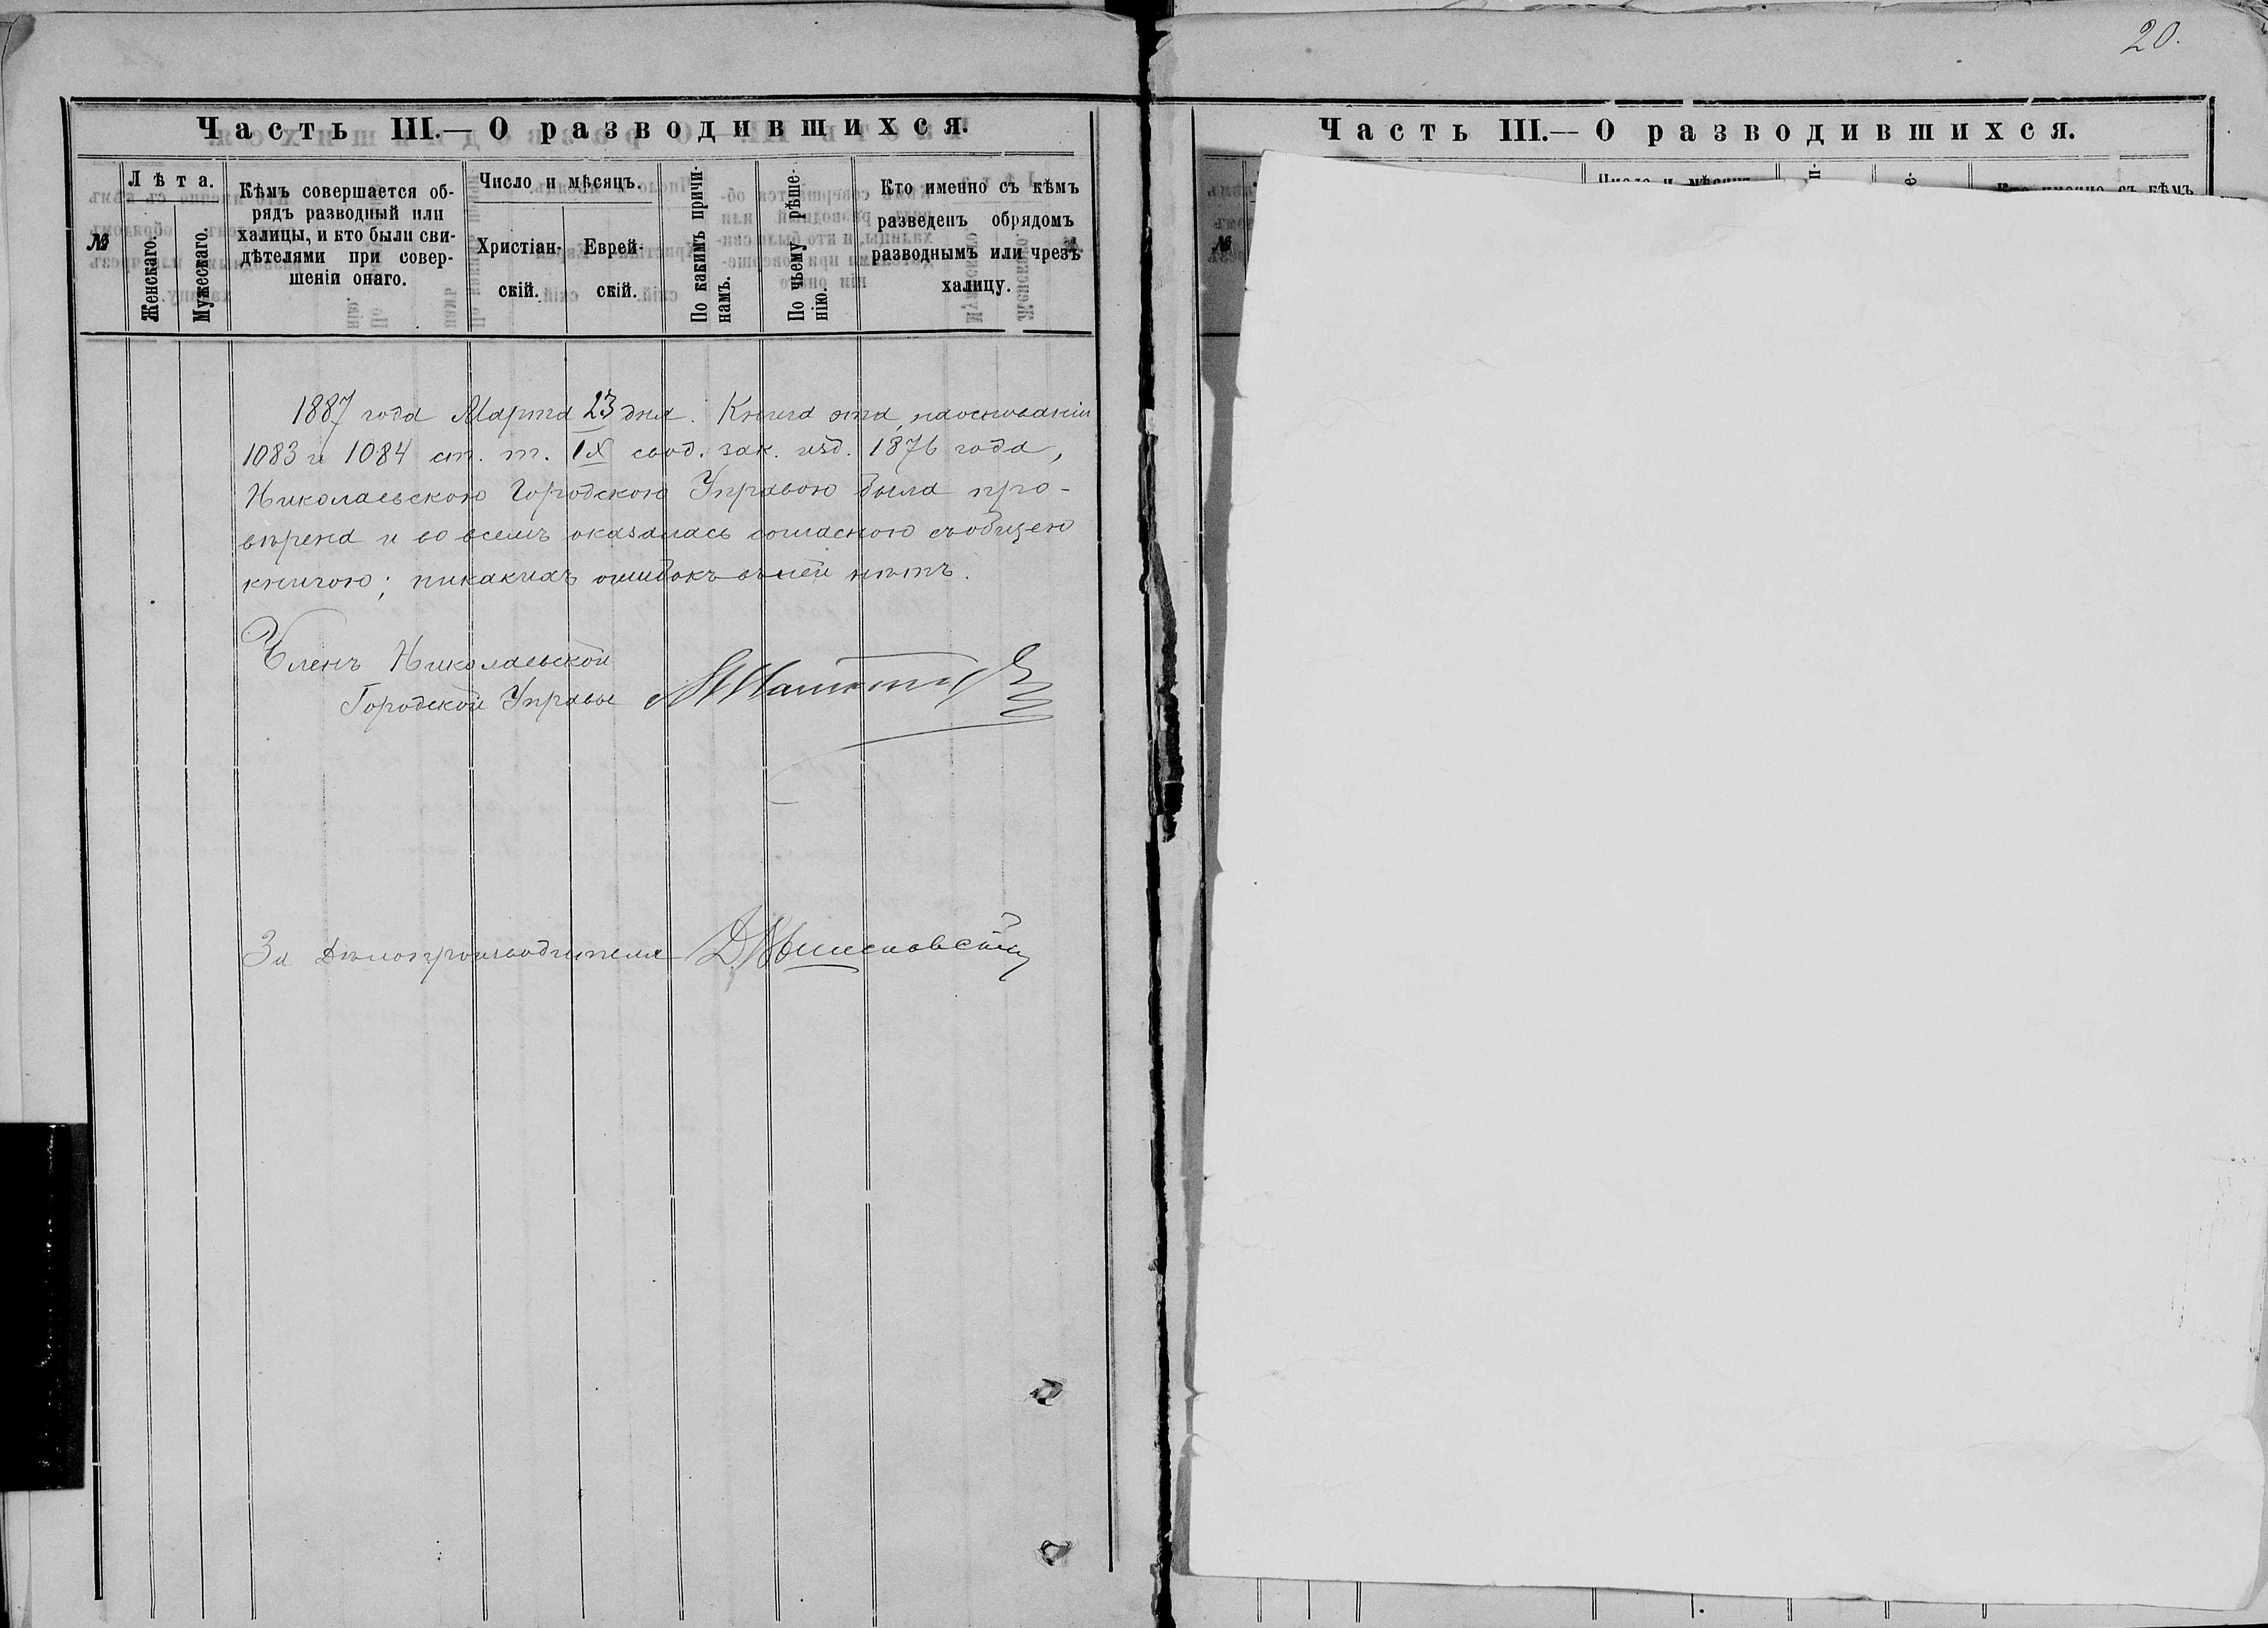 20.
Часть III.— О разводившихся.
№
Лѣта.
Женскаго.
Мужескаго.
Кѣмъ совершается об-
рядъ разводный или
халицы, и кто были сви-
дѣтелями при совер-
шеніи онаго.
Число и мѣсяцъ.
Христіан-
скій.
Еврей-
скій.
По какимъ причи-
намъ.
По чьему рѣше-
нію.
Кто именно съ кѣмъ
разведенъ обрядомъ
разводнымъ или чрезъ
халицу.
1887 года Марта 23 дня. Книга эта, на основаніи
1083 и 1084 ст. т. IX свод. зак. изд. 1876 года,
Николаевскою Городскою Управою была про-
вѣрена и во всемъ оказалась согласною съ общею
книгою; никакихъ ошибокъ въ ней нѣтъ.
Членъ Николаевской
Городской Управы
За Дѣлопроизводителя
Часть III.— О разводившихся.
№
Число и мѣсяцъ
Кто именно съ кѣмъ